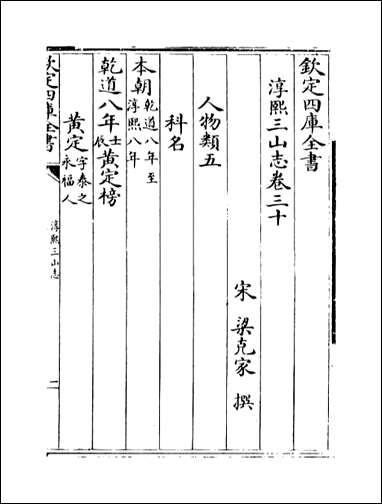 欽定四庫全書
淳熙三山志卷三十
宋 梁克家 撰
人物類五
科名
本朝乾道八年至淳熙八年
乾道八年壬辰黃定榜
黃定字泰之永福人
欽定四庫全書
淳熙三山志
一